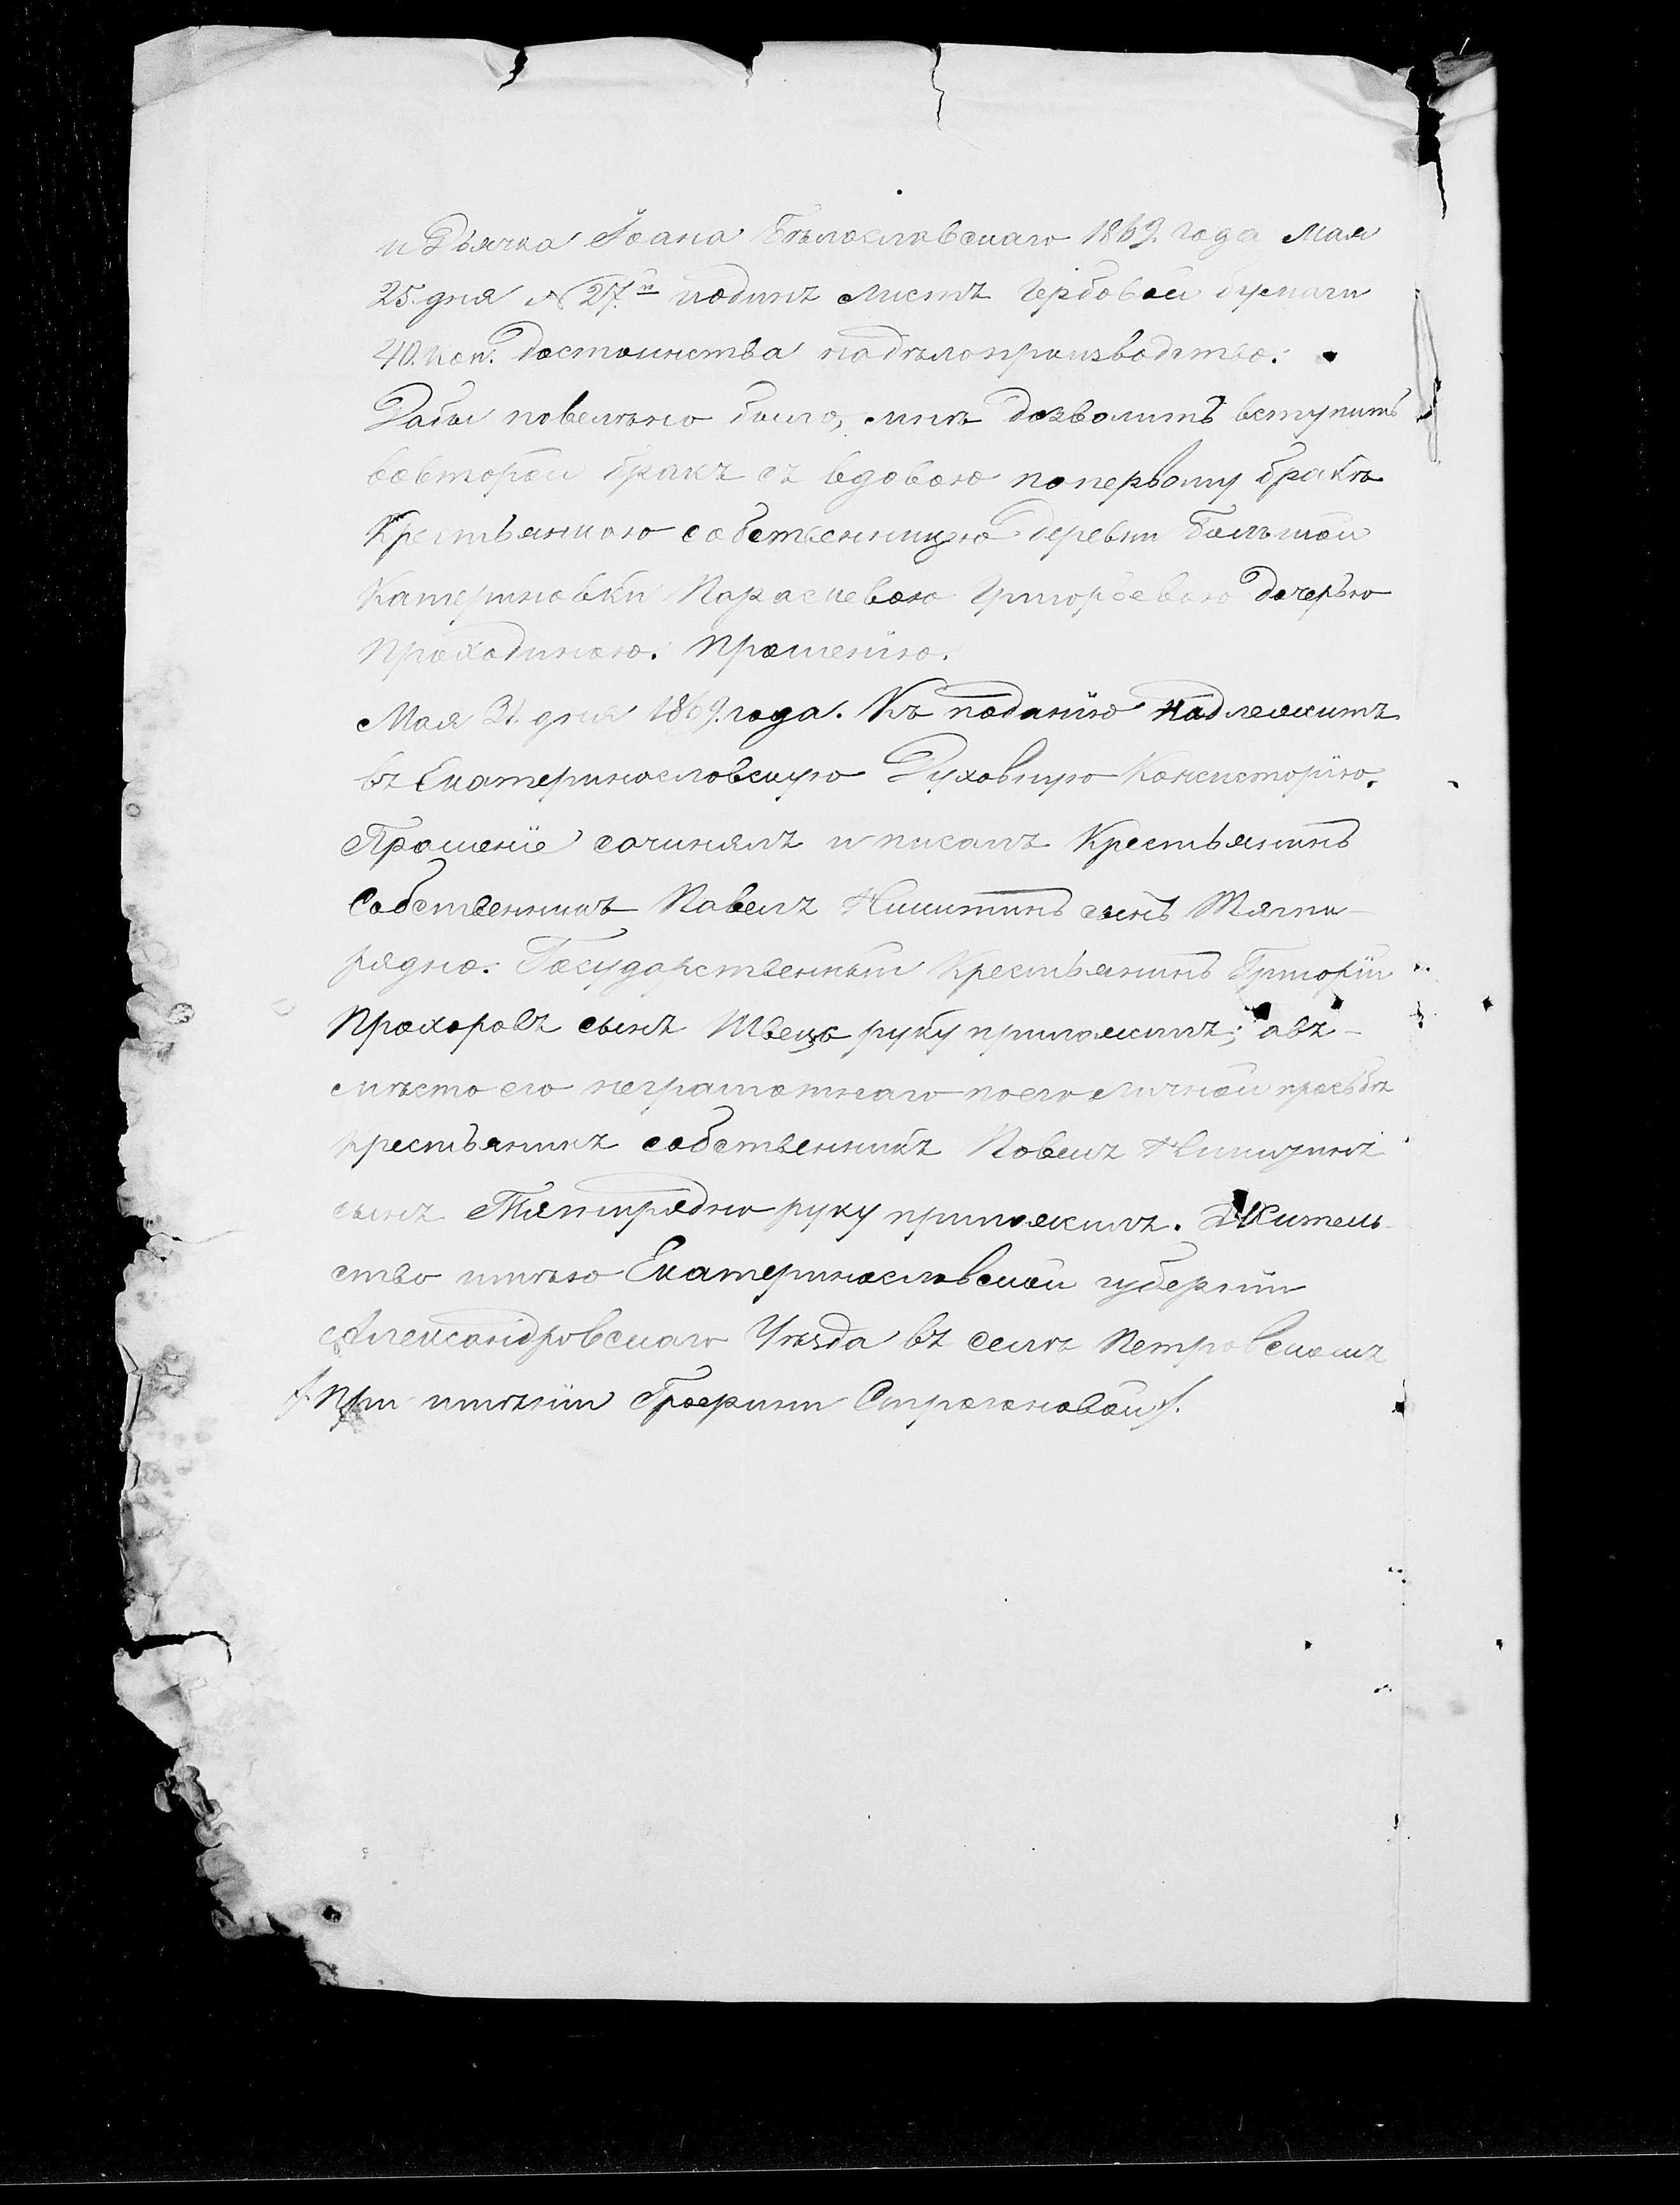 и Дьячка Іоана Бѣлославскаго 1869. года Мая
25. дня № 27.й иодинъ листъ гербовой бумаги
40. коп. достоинства надѣлопроизводство.
Дабы повелѣно было, мнѣ дозволить вступить
вовторой бракъ съ вдовою попервому бракѣ
Крестьянкою собственницею деревни Большой
Катериновки Параскевою Григорьевою дочерью
Проходиною. Прошенію.
Мая 31. дня 1869. года. Къ поданію надлежитъ
въ Екатеринославскую Духовную Консисторію.
Прошеніе сочинялъ и писалъ Крестьянинъ
Собственникъ Павелъ Никитинъ сынъ Тягни-
рядно. Государственный Крестьянинъ Григорій
Прохоровъ сынъ Швецъ руку приложилъ; авъ-
мѣсто его неграмотнаго поего личной прозьбѣ
крестьянинъ собственникъ Павелъ Никитинъ
сынъ Тягнирядно руку приложилъ. Житель-
ство имѣю Екатеринославской губерніи
Александровскаго Уѣзда въ селѣ Петровскомъ
/. При имѣніи Графини Строгоновой /.